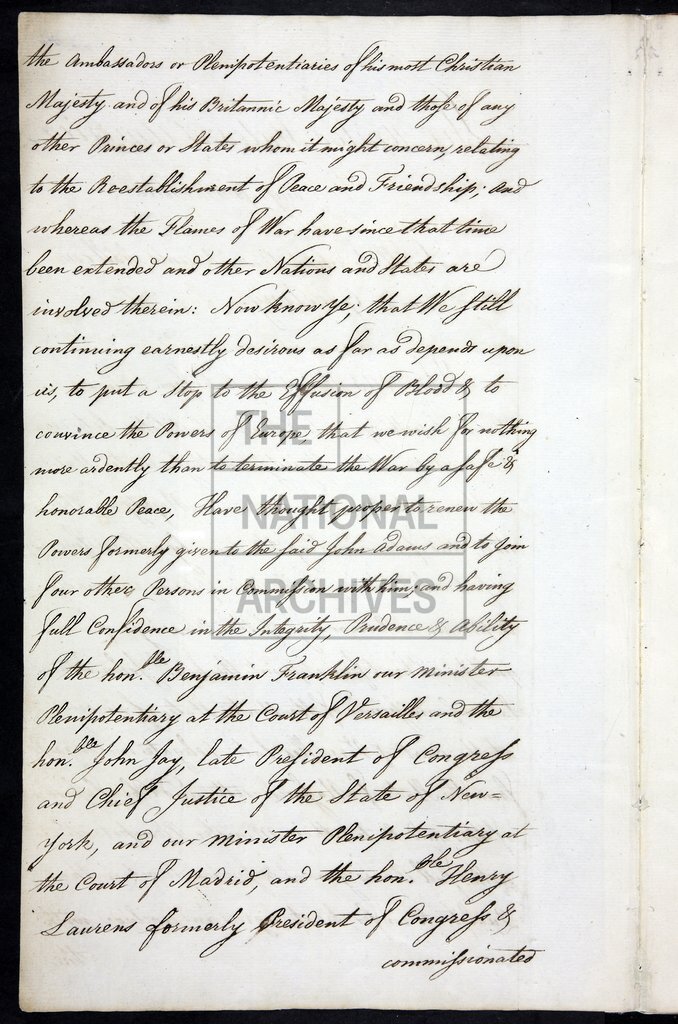 the Ambassadors or Plenipotentiaries of his most Christian
Majesty and of his Britannic Majesty and those of any
other Princes or States whom it might concern, relating
to the Reestablishment of Peace and Friendship; and
whereas the Flames of War have since that time
been extended and other Nations and States are
involved therein: Now know Ye, that We still
continuing earnestly desirous as far as depends upon
us, to put a stop to the Effusion of Blood & to
convince the Powers of Europe, that we wish for nothing
more ardently than to terminate the War by a safe &
honorable Peace, Have thought proper to renew the
Powers formerly given to the said John Adams and to join
four other Persons in Commission with him; and having
full Confidence in the Integrity, Prudence & Ability
of the hon.ble Benjamin Franklin our minister
Plenipotentiary at the Court of Versailles and the
hon.ble John Jay, late President of Congress
and Chief Justice of the State of New=
York, and our minister Plenipotentiary at
the Court of Madrid, and the hon.ble Henry
Laurens formerly President of Congress &
commissionated
THE
NATIONAL
ARCHIVES